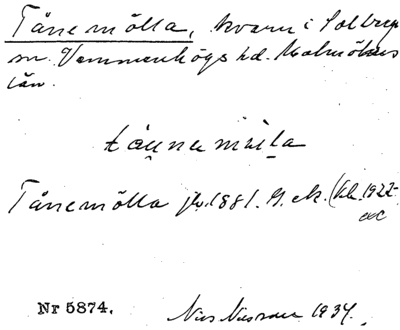 Tånemölla, kvarn i Solberga
sn. Vemmenhögs hd. Malmöhus
län.
Tånemölla jb. 1881. G. ek. (bl. 1922-
Nr 5874.
Nils Nilsson 1934.